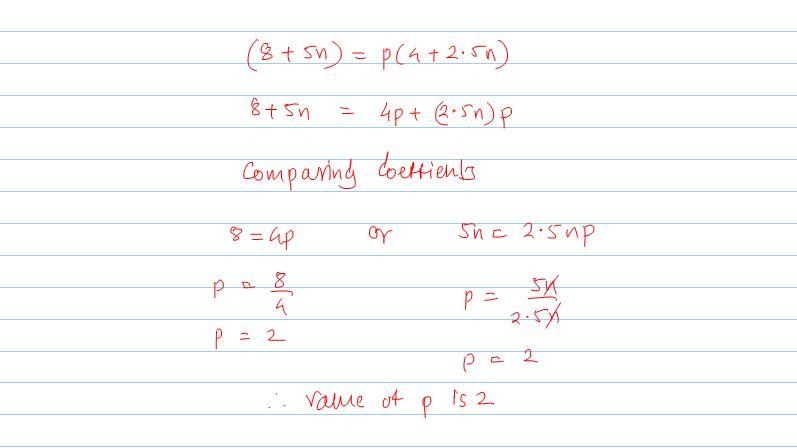 (8 + 5n) = p(4 + 2.5n)
8 + 5n = 4p + (2.5n)p
Comparing Coettients
8 = 4p or 5n = 2.5np
p = 8/4 p = 5n/2.5n
p = 2
p = 2
∴ value of p is 2